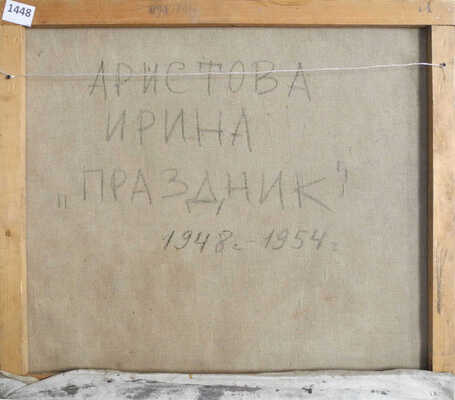 1448
АРИСТОВА
ИРИНА
„ПРАЗДНИК"
1948г.-1954г.